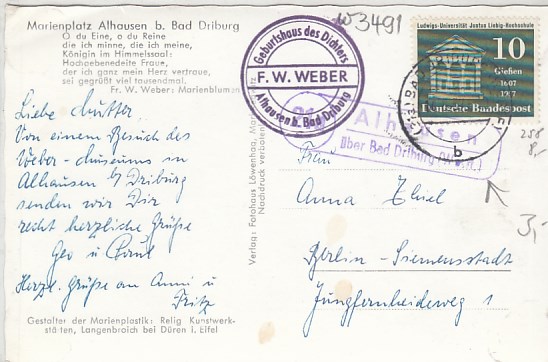 Marienplatz Alhausen b. Bad Driburg
O du Eine, o du Reine
die ich minne, die ich meine,
Königin im Himmelssaal:
Hochgebenedeite Fraue,
der ich ganz mein Herz vertraue,
sei gegrüßt viel tausendmal.
Fr. W. Weber: Marienblumen
Liebe Mutter
Von einem Besuch des
Weber-Museums in
Alhausen b/ Driburg
senden wir Dir
recht herzliche Grüße
Geo u
Herzl. Grüße an Anni u
Fritz
Gestalter der Marienplastik: Relig Kunstwerk-
stätten, Langenbroich bei Düren i. Eifel
Verlag: Fotohaus Löwenhaus,
Nachdruck verboten
w3491
Geburtshaus des Dichters
F. W. WEBER
Alhausen b. Bad Driburg
Alhausen
über Bad Driburg (Westf.)
Ludwigs-Universität Justus Liebig-Hochschule
10
Gießen
1607
1957
Deutsche Bundespost
BAD
b
258
8,-
3,-
Frau
Anna
Berlin-Siemensstadt
Jungfernheideweg 1